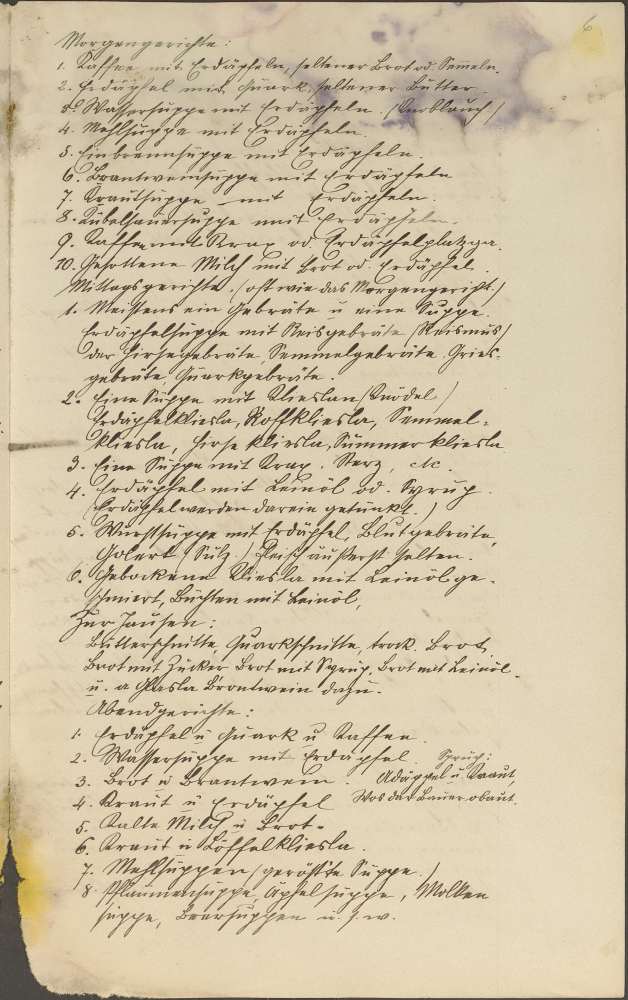 6
Morgengerichte:
1. Kaffee mit Erdäpfeln, seltener Brot od Semeln.
2. Erdäpfel mit Quark, seltener Butter.
3. Wassersuppe mit Erdäpfeln. (Knoblauch)
4. Mehlsuppe mit Erdäpfeln.
5. Einbrennsuppe mit Erdäpfeln.
6. Brantweinsuppe mit Erdäpfeln
7. Krautsuppe mit Erdäpfeln.
8. Kübelsauersuppe mit Erdäpfeln.
9. Kaffee mit Krap od. Erdäpfelplatzga.
10. Gesottene Milch mit Brot od. Erdäpfel.
Mittagsgerichte. (oft wie das Morgengericht.)
1. Meistens ein Gebräte u eine Suppe.
Erdäpfelsuppe mit Reisgebräte (Reismus)
der Hirsegebräte, Semmelgebräte. Gries-
gebräte, Quarkgebräte.
2. Eine Suppe mit Klieslan (Knödel)
Erdäpfelkliesla, Roffkliesla, Semmel-
kliesla, Hirse kliesla, Summer kliesla
3. Eine Suppe mit Krap. Sterz, etc.
4. Erdäpfel mit Leinöl od. Syrup.
(Erdäpfel werden darein getunkt.)
5. Wurstsuppe mit Erdäpfel, Blutgebräte,
(Sulz.) Fleisch äußerst selten.
6. Gebackene Kliesla mit Leinöl ge-
schmiert, Buchten mit Leinöl,
Zur Jausen:
Butterschnitte, Quarkschnitte, trock. Brot,
Brot mit Zucker Brot mit Syrup, Brot mit Leinöl.
u. a Glasla Brantwein dazu.
Abendgerichte:
1. Erdäpfel u Quark u Kaffee.
2. Wassersuppe mit Erdäpfel. Spruch:
3. Brot u Brantwein. Adäppel u Kraut,
4. Kraut u Erdäpfel Wos das Bauer obaut.
5. Kalte Milch u Brot.
6. Kraut u Löffelkliesla.
7. Mehlsuppen (geröstte Suppe.)
8. Pflaumensuppe, Apfelsuppe, Molken
suppe, Beersuppen u. s. w.